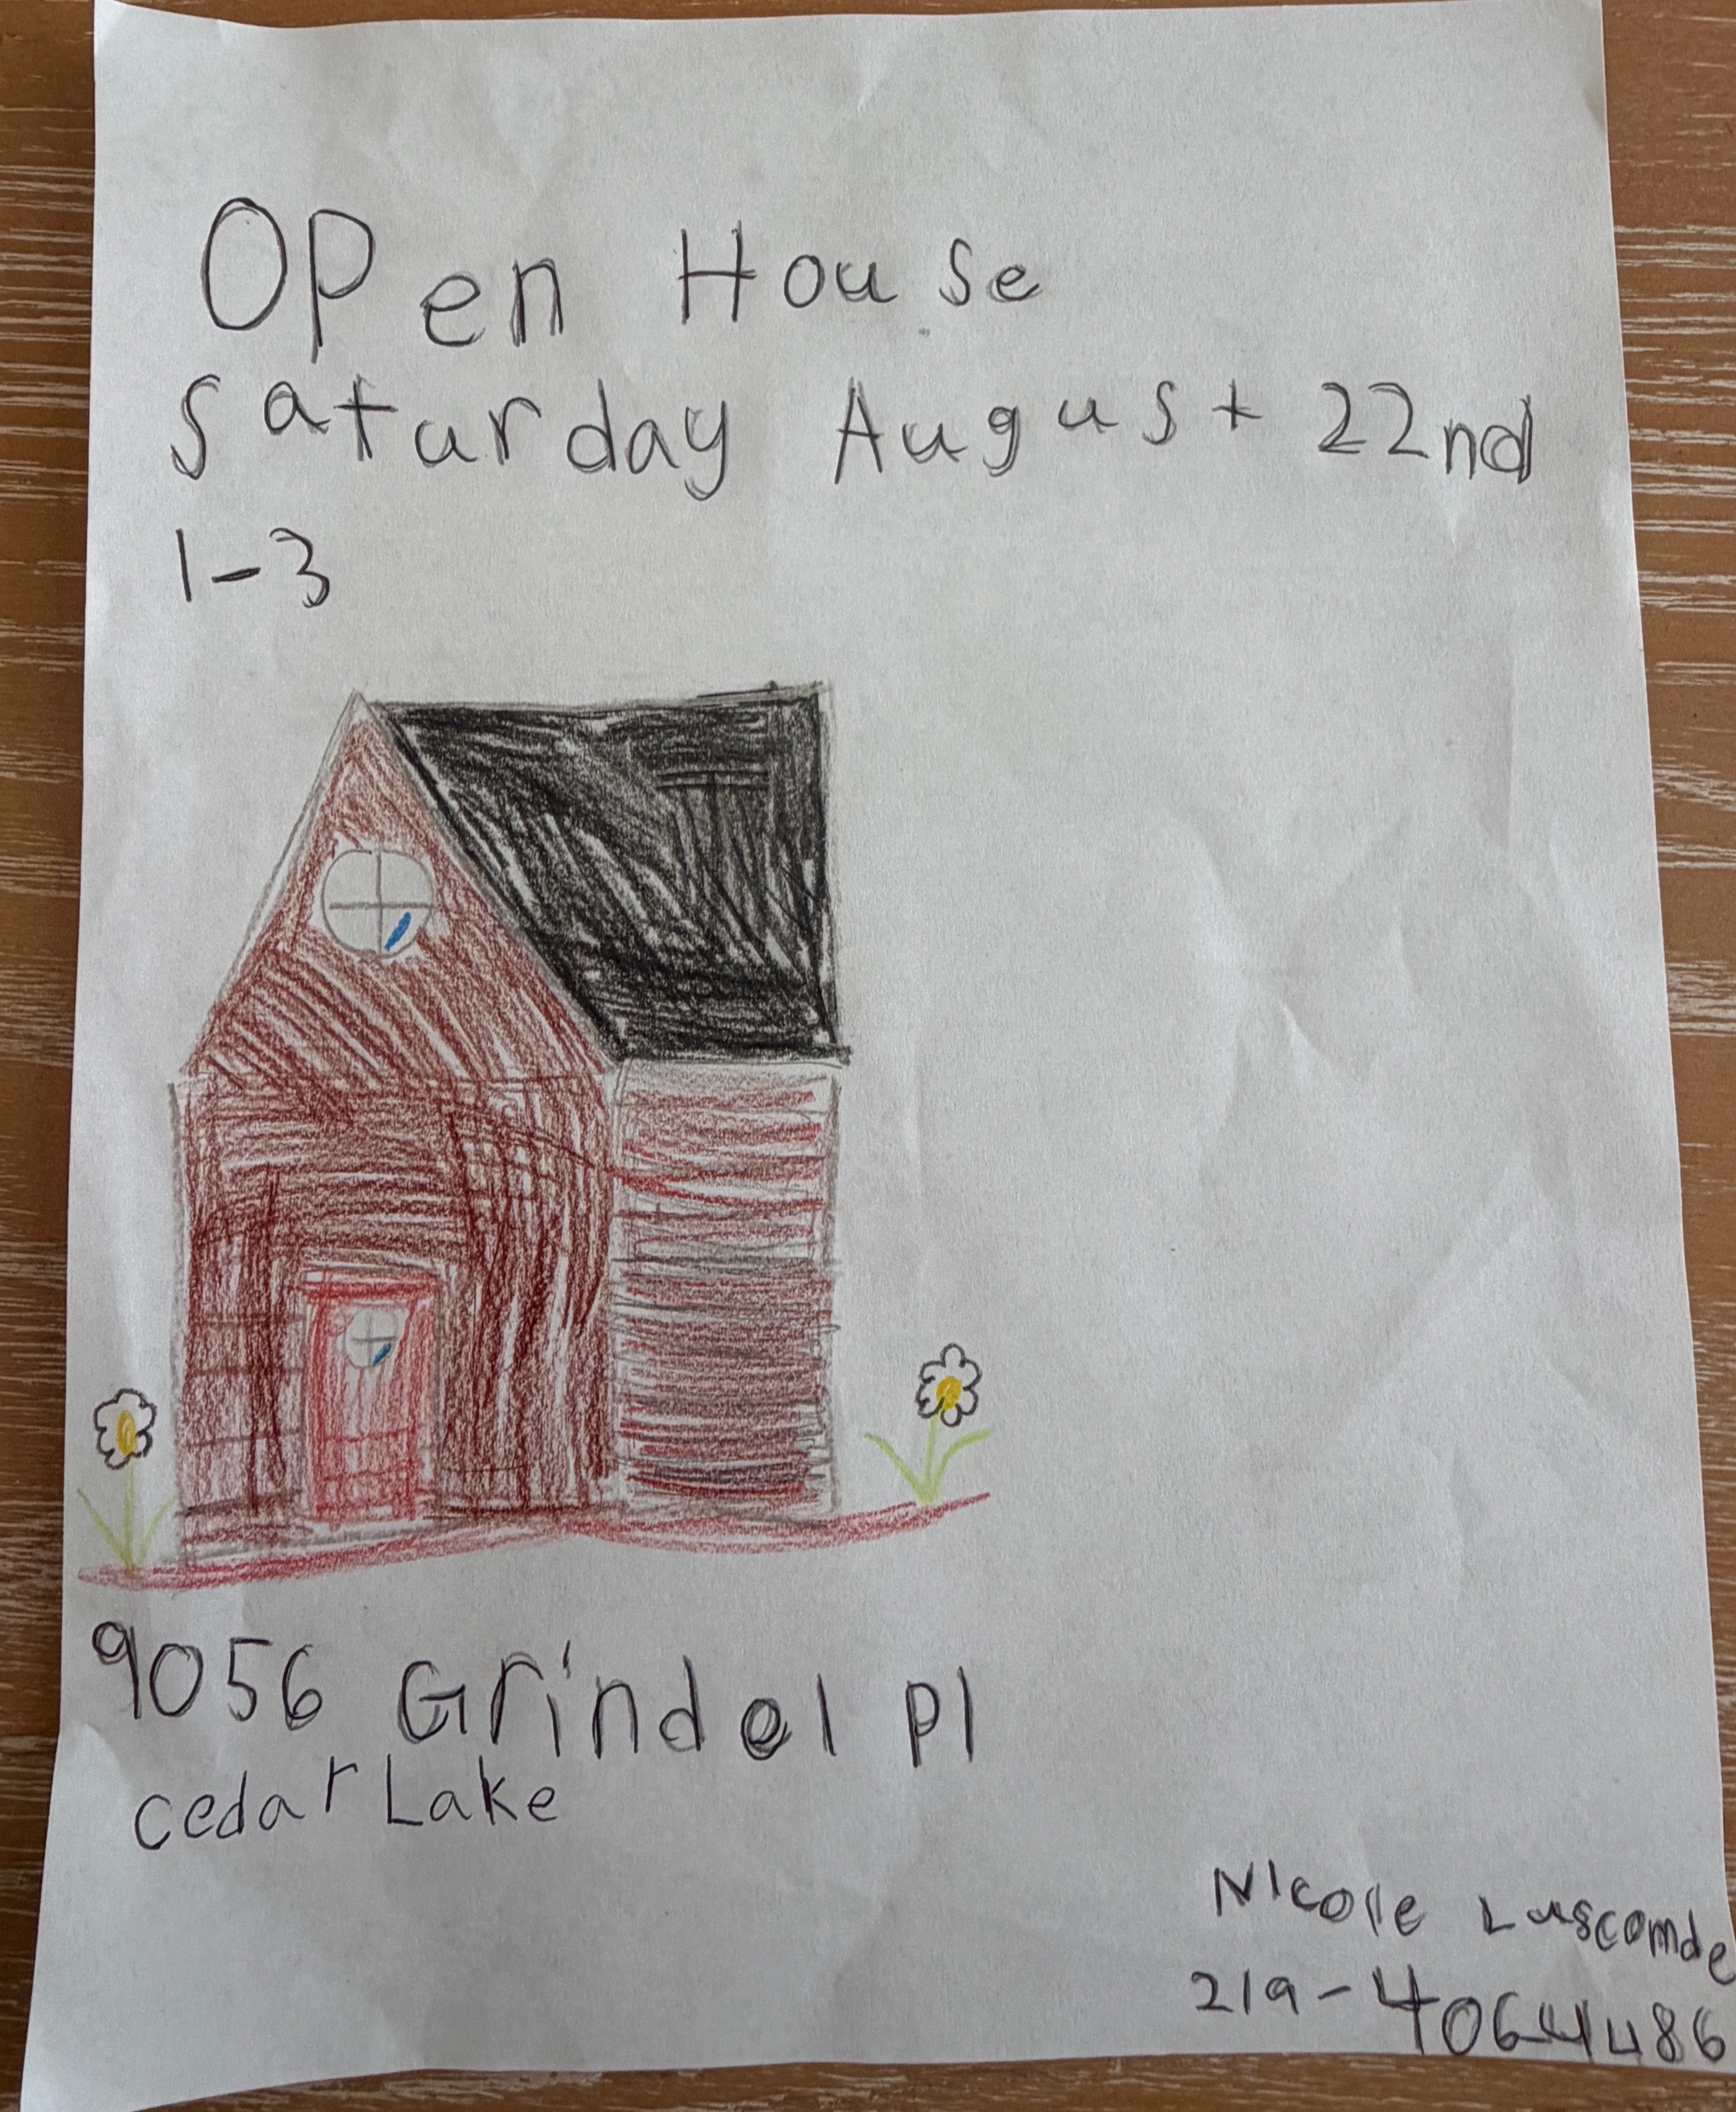 Open House
Saturday August 22nd
1-3
9056 Grindel Pl
cedar Lake
Nicole Luscomde
219-4064486